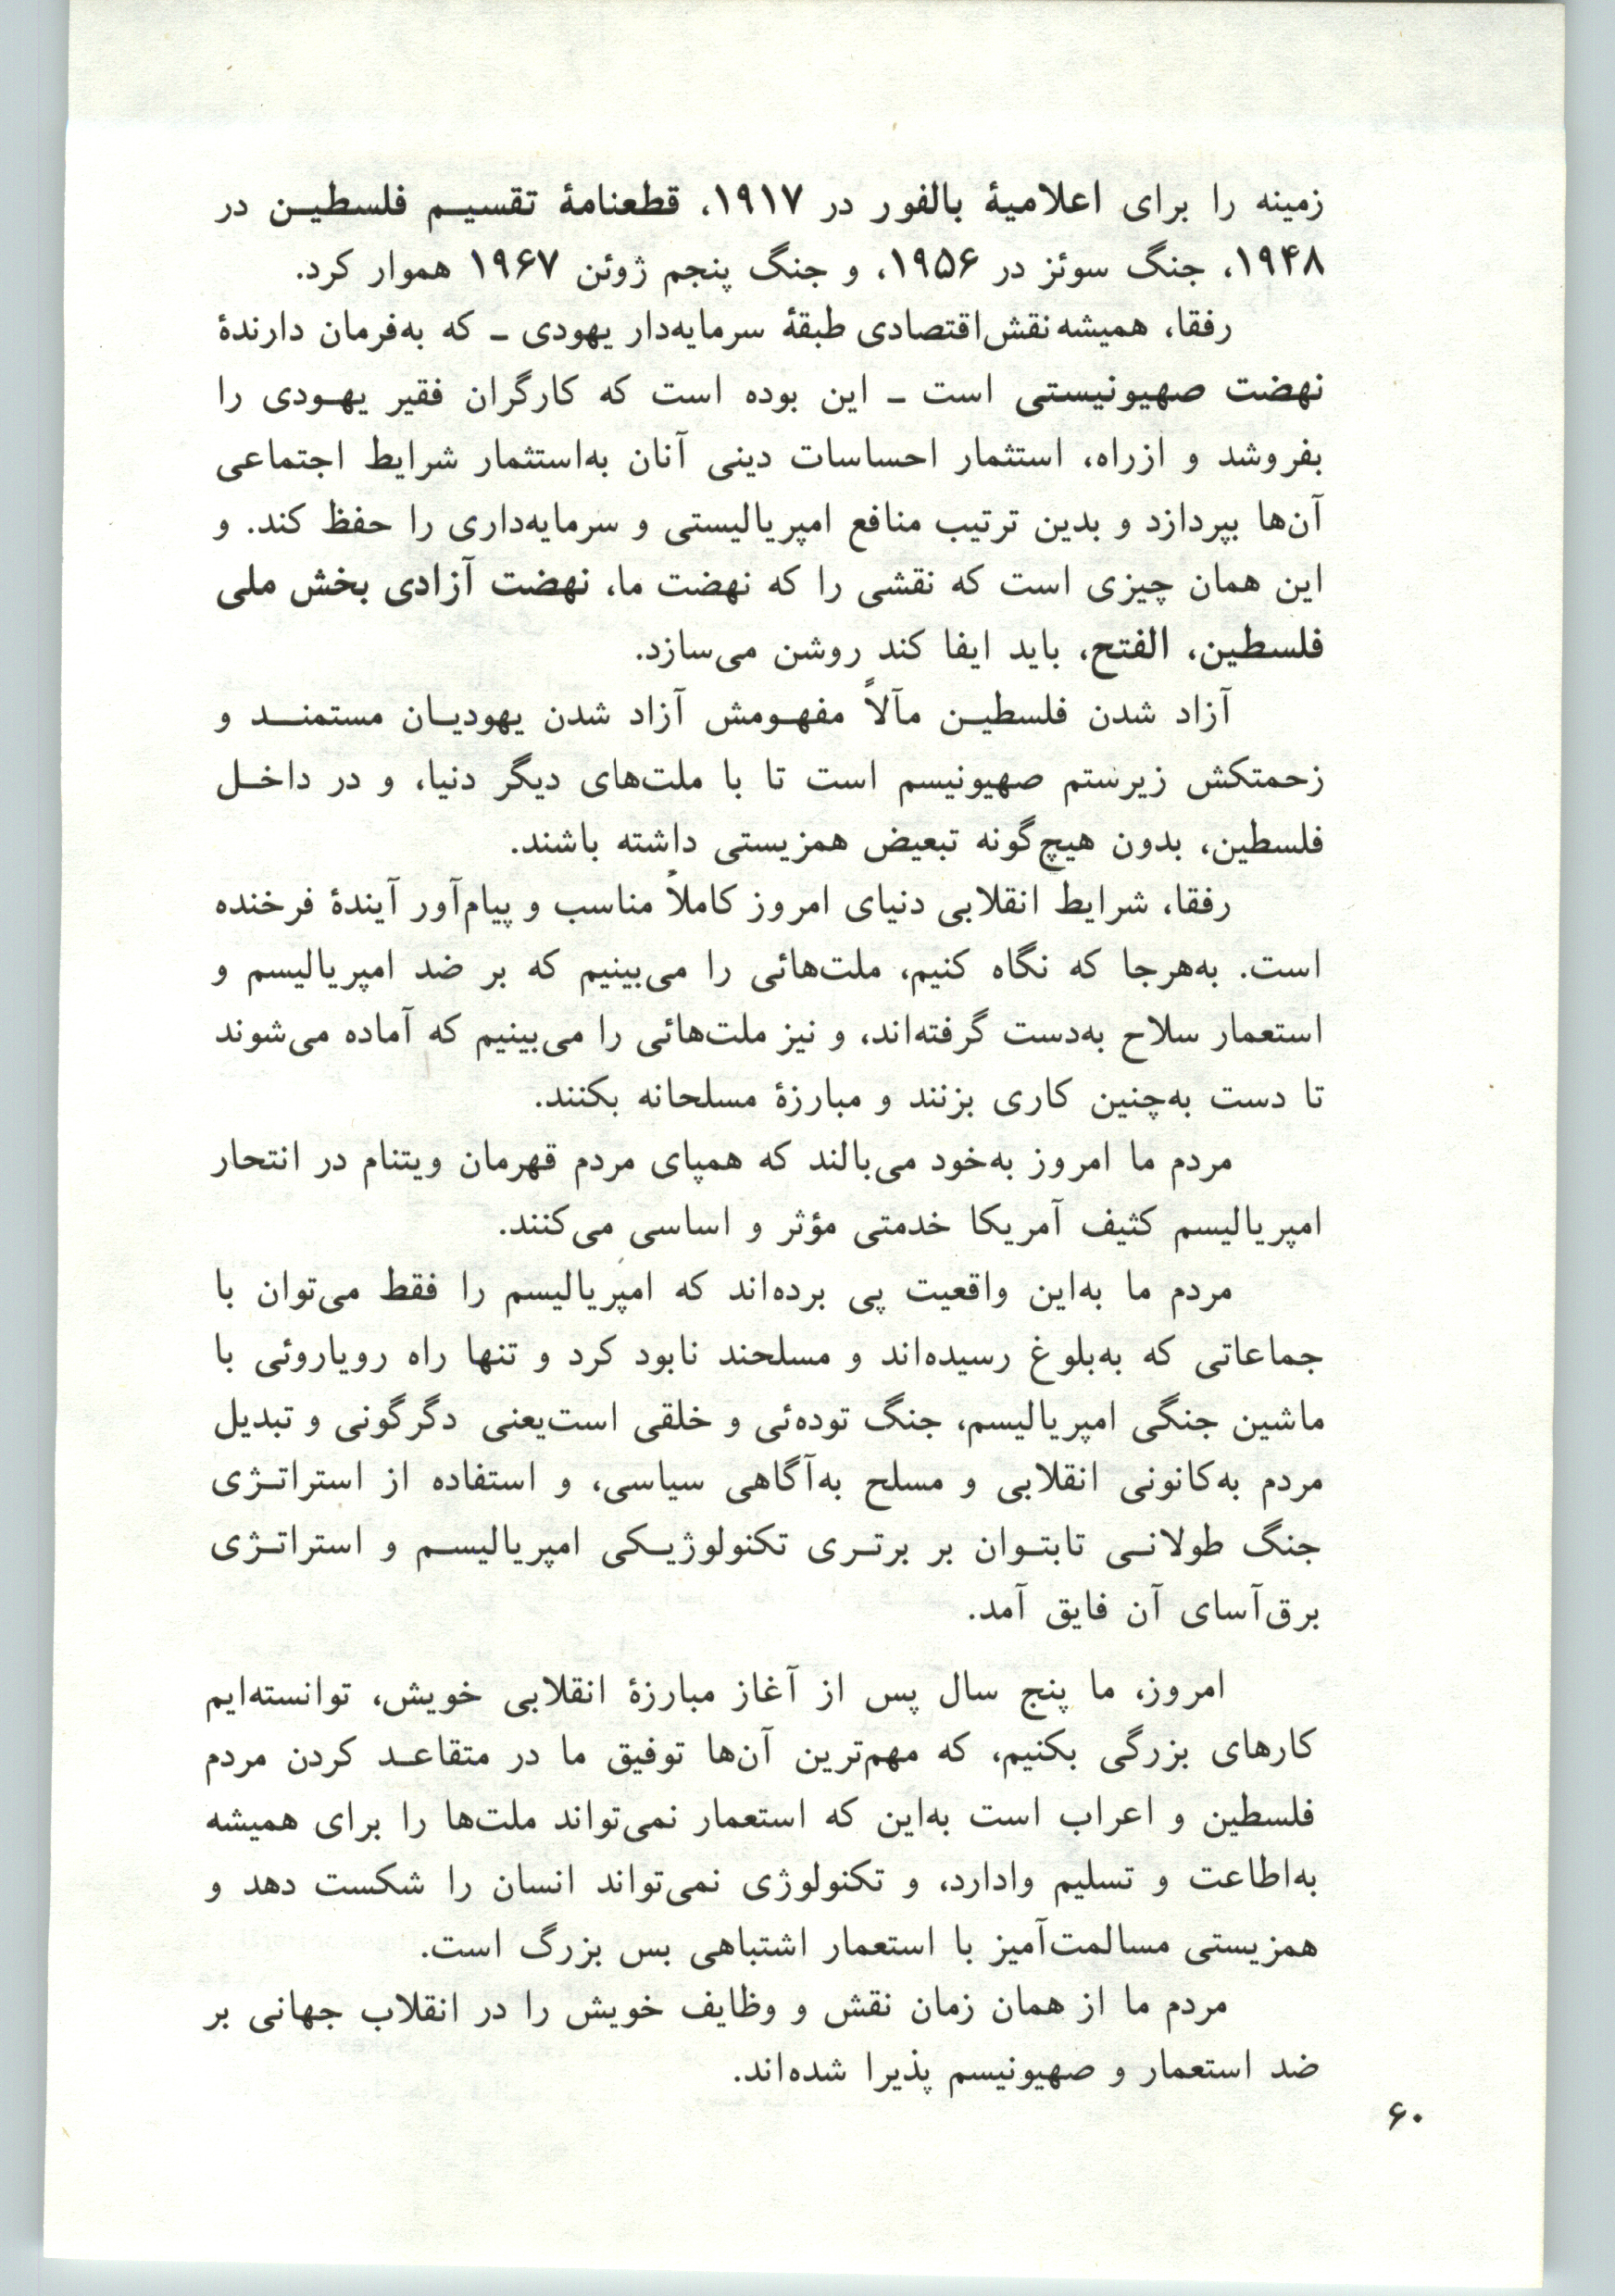 زمینه را برای اعلامیهٔ بالفور در ۱۹۱۷، قطعنامهٔ تقسیم فلسطین در
۱۹۴۸، جنگ سوئز در ۱۹۵۶، و جنگ پنجم ژوئن ۱۹۶۷ هموار کرد.
رفقا، همیشه نقش اقتصادی طبقهٔ سرمایه‌دار یهودی ـ که به‌فرمان دارندهٔ
نهضت صهیونیستی است ـ این بوده است که کارگران فقیر یهودی را
بفروشد و ازراه، استثمار احساسات دینی آنان به‌استثمار شرایط اجتماعی
آن‌ها بپردازد و بدین ترتیب منافع امپریالیستی و سرمایه‌داری را حفظ کند. و
این همان چیزی است که نقشی را که نهضت ما، نهضت آزادی بخش ملی
فلسطین، الفتح، باید ایفا کند روشن می‌سازد.
آزاد شدن فلسطین مآلاً مفهومش آزاد شدن یهودیان مستمند و
زحمتکش زیرستم صهیونیسم است تا با ملت‌های دیگر دنیا، و در داخل
فلسطین، بدون هیچ‌گونه تبعیض همزیستی داشته باشند.
رفقا، شرایط انقلابی دنیای امروز کاملاً مناسب و پیام‌آور آیندهٔ فرخنده
است. به‌هرجا که نگاه کنیم، ملت‌هائی را می‌بینیم که بر ضد امپریالیسم و
استعمار سلاح به‌دست گرفته‌اند، و نیز ملت‌هائی را می‌بینیم که آماده می‌شوند
تا دست به‌چنین کاری بزنند و مبارزهٔ مسلحانه بکنند.
مردم ما امروز به‌خود می‌بالند که همپای مردم قهرمان ویتنام در انتحار
امپریالیسم کثیف آمریکا خدمتی مؤثر و اساسی می‌کنند.
مردم ما به‌این واقعیت پی برده‌اند که امپریالیسم را فقط می‌توان با
جماعاتی که به‌بلوغ رسیده‌اند و مسلحند نابود کرد و تنها راه رویاروئی با
ماشین جنگی امپریالیسم، جنگ توده‌ئی و خلقی است‌یعنی دگرگونی و تبدیل
مردم به‌کانونی انقلابی و مسلح به‌آگاهی سیاسی، و استفاده از استراتژی
جنگ طولانی تابتوان بر برتری تکنولوژیکی امپریالیسم و استراتژی
برق‌آسای آن فایق آمد.
امروز، ما پنج سال پس از آغاز مبارزهٔ انقلابی خویش، توانسته‌ایم
کارهای بزرگی بکنیم، که مهم‌ترین آن‌ها توفیق ما در متقاعد کردن مردم
فلسطین و اعراب است به‌این که استعمار نمی‌تواند ملت‌ها را برای همیشه
به‌اطاعت و تسلیم وادارد، و تکنولوژی نمی‌تواند انسان را شکست دهد و
همزیستی مسالمت‌آمیز با استعمار اشتباهی بس بزرگ است.
مردم ما از همان زمان نقش و وظایف خویش را در انقلاب جهانی بر
ضد استعمار و صهیونیسم پذیرا شده‌اند.
۶۰